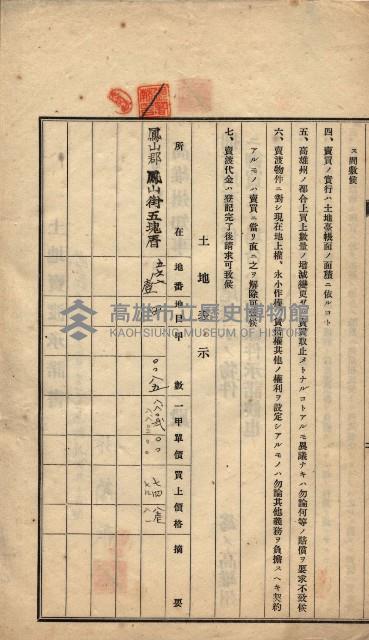 ス間敷候
四、賣買ノ實行ハ土地臺帳面ノ面積ニ依ルコト
五、高雄州ノ都合上買上數量ノ增減變更又ハ賣買取止メトナルコトアルモ異議ナキハ勿論何等ノ賠償ヲ要求不致候
六、賣渡物件ニ對シ現在地上權、永小作權、賃借權其他ノ權利ヲ設定シアルモノハ勿論其他義務ヲ負擔スヘキ契約
アルモノハ賣買ニ當リ直ニ之ヲ解除可致候
七、賣渡代金ハ登記完了後請求可致候
土地表示
所在 地番 地目 甲數 一甲單價 買上價格 摘要
鳳山郡鳳山街五塊厝
高雄市立歷史博物館
KAOHSIUNG MUSEUM OF HISTORY